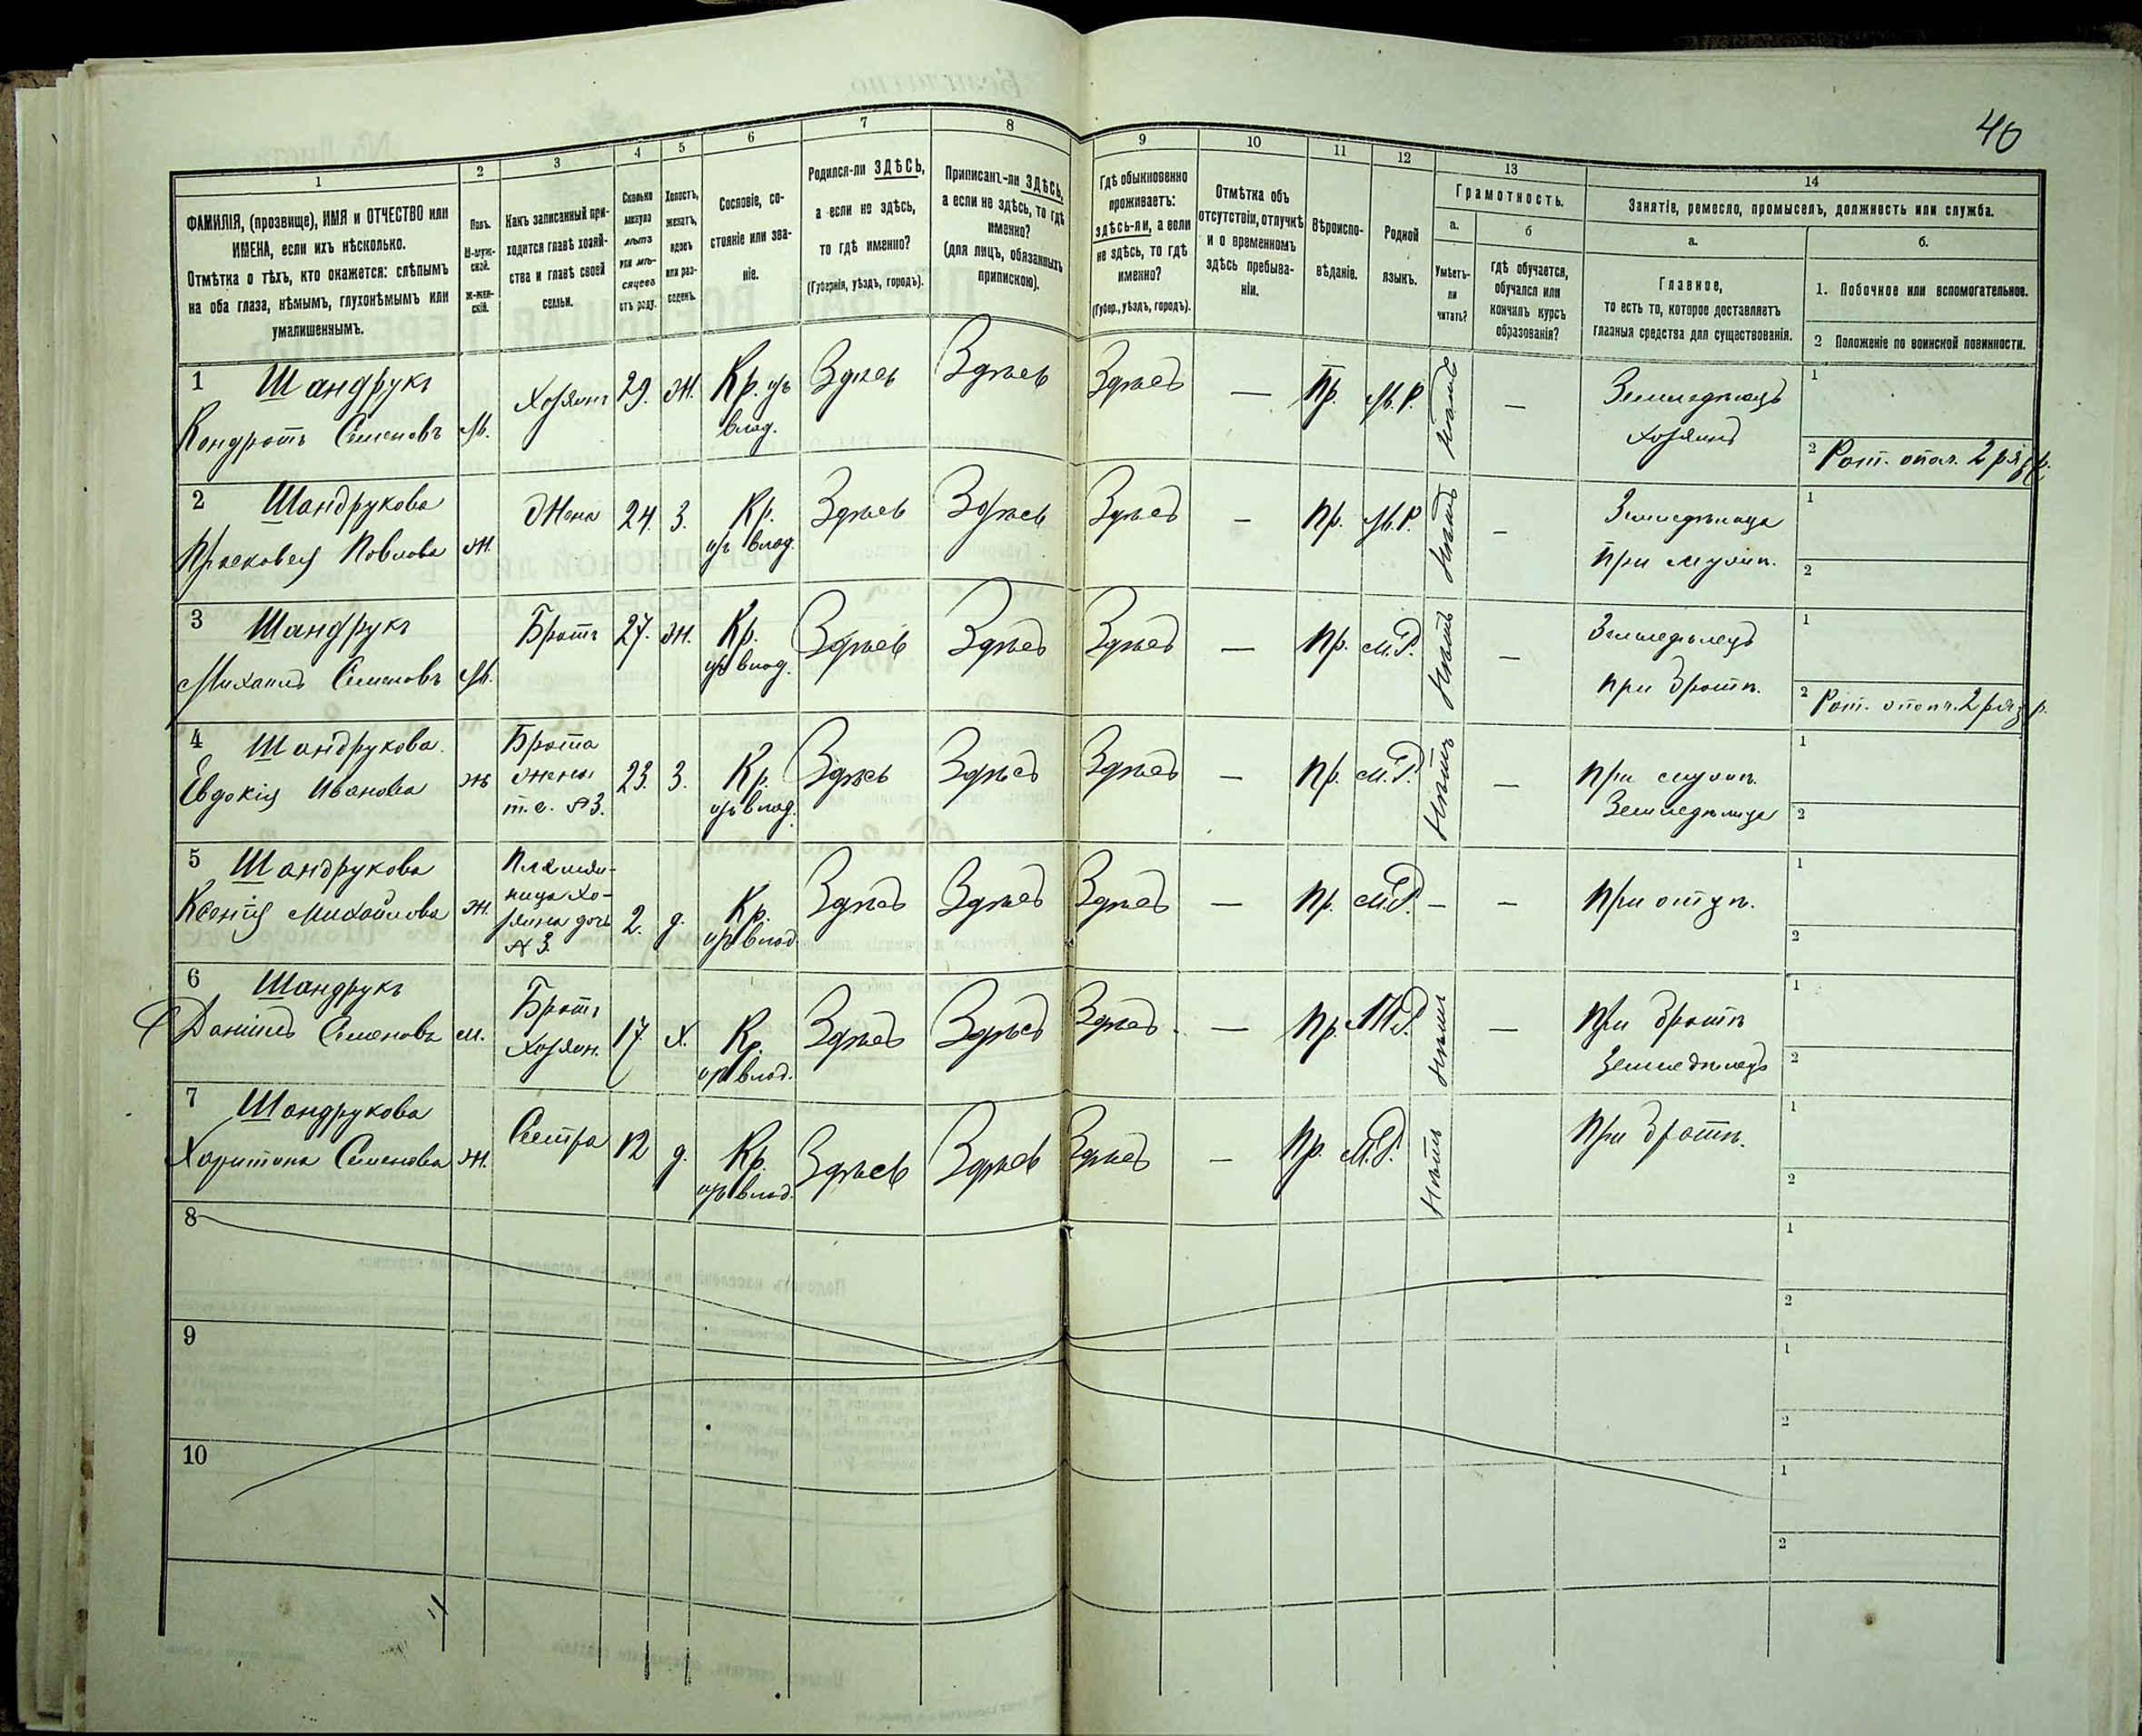 40
1
2
3
4
5
6
7
8
9
10
11
12
13
14
ФАМИЛІЯ, (прозвище), ИМЯ и ОТЧЕСТВО или
ИМЕНА, если ихъ нѣсколько.
Отмѣтка о тѣхъ, кто окажется: слѣпымъ
на оба глаза, нѣмымъ, глухонѣмымъ или
умалишеннымъ.
Полъ.
М-муж-
ской.
Ж-жен-
скій.
Какъ записанный при-
ходится главѣ хозяй-
ства и главѣ своей
семьи.
Сколько
минуло
лѣтъ
или мѣ-
сяцевъ
отъ роду.
Холостъ,
женатъ,
вдовъ
или раз-
веденъ.
Сословіе, со-
стояніе или зва-
ніе.
Родился-ли ЗДѢСЬ,
а если не здѣсь,
то гдѣ именно?
(Губернія, уѣздъ, городъ).
Приписанъ-ли ЗДѢСЬ,
а если не здѣсь, то гдѣ
именно?
(для лицъ, обязанныхъ
припискою).
Гдѣ обыкновенно
проживаетъ:
здѣсь-ли, а если
не здѣсь, то гдѣ
именно?
(Губер., уѣздъ, городъ).
Отмѣтка объ
отсутствіи, отлучкѣ
и о временномъ
здѣсь пребыва-
ніи.
Вѣроиспо-
вѣданіе.
Родной
языкъ.
Грамотность.
а.
Умѣетъ-
ли
читать?
б
гдѣ обучается,
обучался или
кончилъ курсъ
образованія?
Занятіе, ремесло, промыселъ, должность или служба.
а.
Главное,
то есть то, которое доставляетъ
главныя средства для существованія.
б.
1. Побочное или вспомогательное.
2 Положеніе по воинской повинности.
1 Шандрукъ
Кондратъ Семеновъ М. Хозяинъ 29. Ж. Кр. изъ влад. Здѣсь Здѣсь Здѣсь — Пр. М.Р. Нѣтъ — Земледѣлецъ хозяинъ
1
2 Рат. опол. 2 разр.
2 Шандрукова
Прасковея Павлова Ж. Жена 24. З. Кр. изъ влад. Здѣсь Здѣсь Здѣсь — Пр. М.Р. Нѣтъ — Земледѣлица при мужѣ.
1
2
3 Шандрукъ
Михаилъ Семеновъ М. Братъ 27. Ж. Кр. изъ влад. Здѣсь Здѣсь Здѣсь — Пр. М.Р. Нѣтъ — Земледѣлецъ при братѣ.
1
2 Рат. опол. 2 разр.
4 Шандрукова
Евдокія Иванова Ж Брата жена т.е. №3. 23. З. Кр. изъ влад. Здѣсь Здѣсь Здѣсь — Пр. М.Р. Нѣтъ — При мужѣ. Земледѣлица
1
2
5 Шандрукова
Ксенія Михайлова Ж. Племян-
ница хо-
зяина дочь
№ 3. 2. д. Кр. изъ влад Здѣсь Здѣсь Здѣсь — Пр. М.Р. — — При отцѣ.
1
2
6 Шандрукъ
Даніилъ Семеновъ М. Братъ Хозяин. 17. Х. Кр. изъ влад. Здѣсь Здѣсь Здѣсь — Пр. М.Р. Нѣтъ — При братѣ Земледѣлецъ
1
2
7 Шандрукова
Харитина Семенова Ж. Сестра 12 д. Кр. изъ влад. Здѣсь Здѣсь Здѣсь — Пр. М.Р. Нѣтъ При братѣ.
1
2
8
1
2
9
1
2
10
1
2